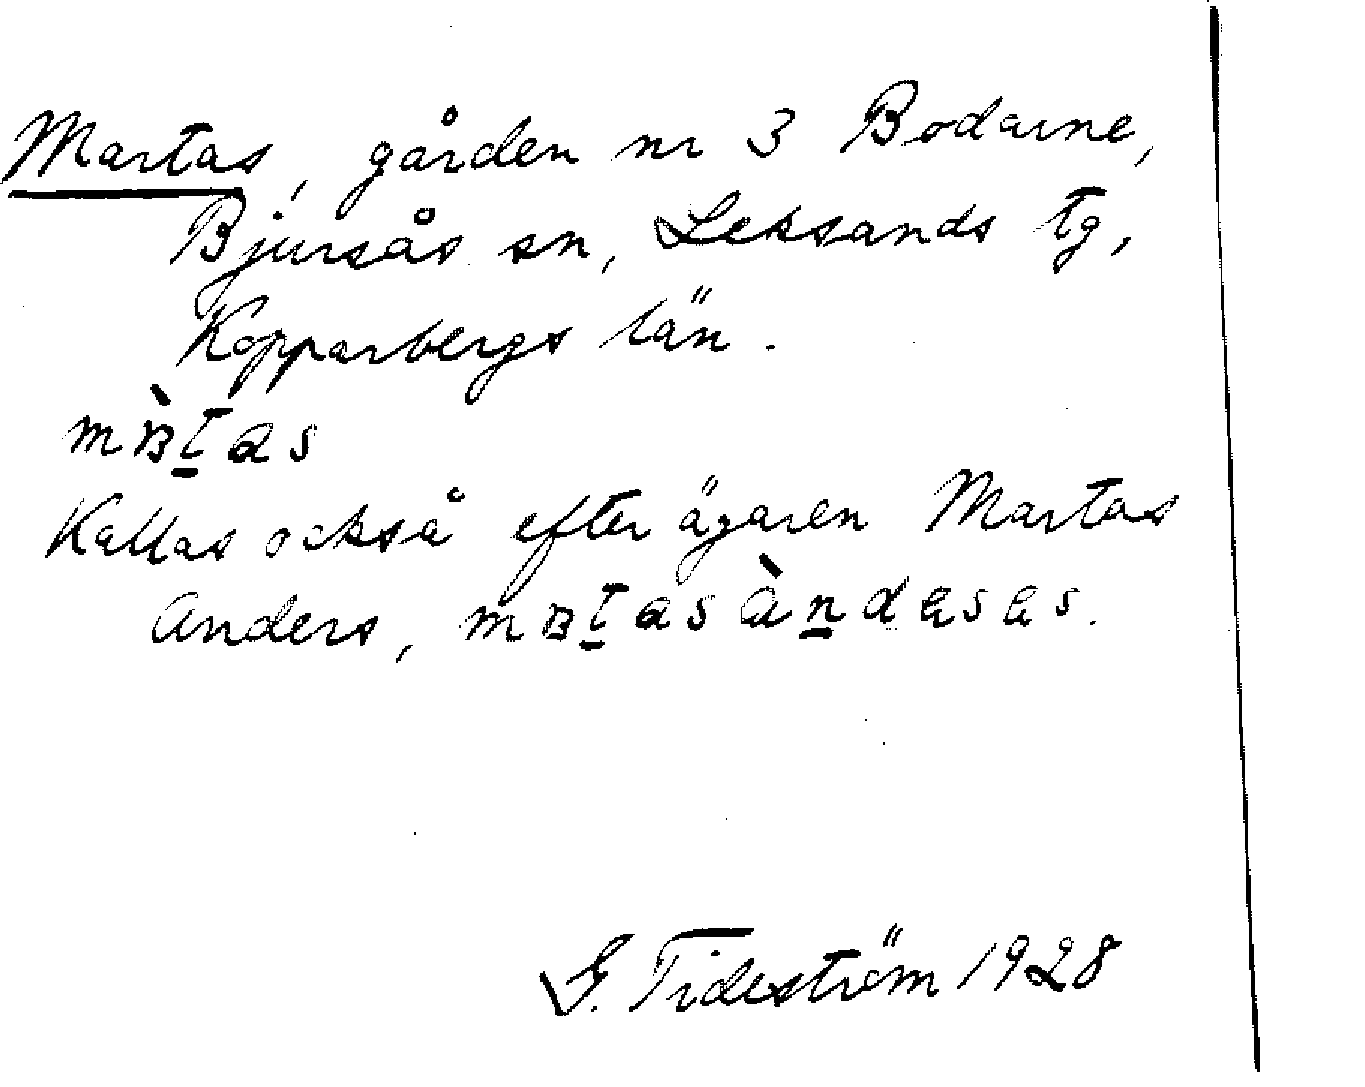 Martas, gården nr 3 Bodarne,
Bjursås sn, Leksands tg,
Kopparbergs län.
Kallas också efter ägaren Martas
Anders,
G. Tideström 1928